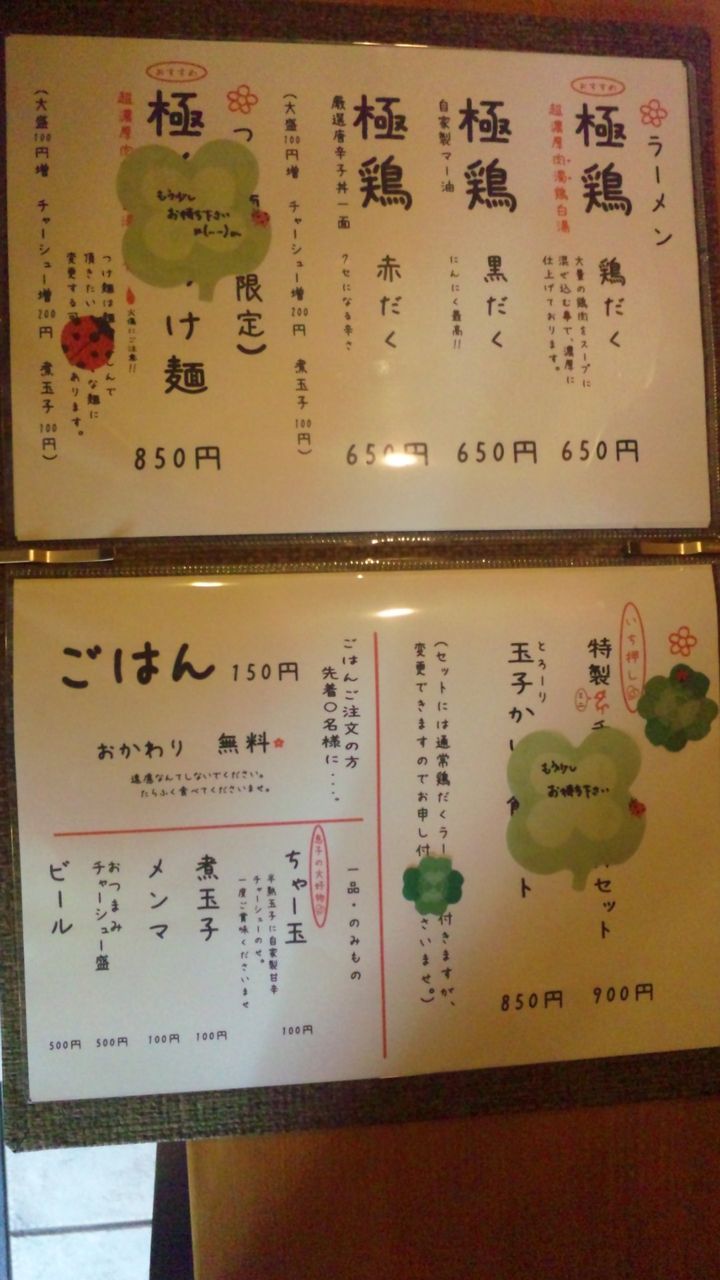 ラーメン
おすすめ
極鶏 鶏だく
超濃厚肉濁鶏白湯
大量の鶏肉をスープに
混ぜ込む事で、濃厚に
仕上げております。
650円
極鶏 黒だく
自家製マー油
にんにく最高!!
650円
極鶏 赤だく
厳選唐辛子丼一面
クセになる辛さ
650円
(大盛100円増 チャーシュー増200円 煮玉子100円)
つ
限定)
おすすめ
極
け麺
もう少し
お待ち下さい
m(--)m
超濃厚肉
火傷にご注意!!
850円
つけ麺は麺
しんで
頂きたい
な麺に
変更する
あります。
(大盛100円増 チャーシュー増200円 煮玉子100円)
いち押し
特製
セット
900円
とろーり
玉子か
ト
850円
もう少し
お待ち下さい
(セットには通常鶏だくラー
付きますが、
変更できますのでお申し付
さいませ。)
ごはんご注文の方
先着〇名様に・・・。
ごはん 150円
おかわり 無料
遠慮なんてしないでください。
たらふく食べてくださいませ。
一品・のみもの
息子の大好物
ちゃー玉
半熟玉子に自家製甘辛
チャーシューのせ。
一度ご賞味くださいませ
100円
煮玉子
100円
メンマ
100円
おつまみ
チャーシュー盛
500円
ビール
500円